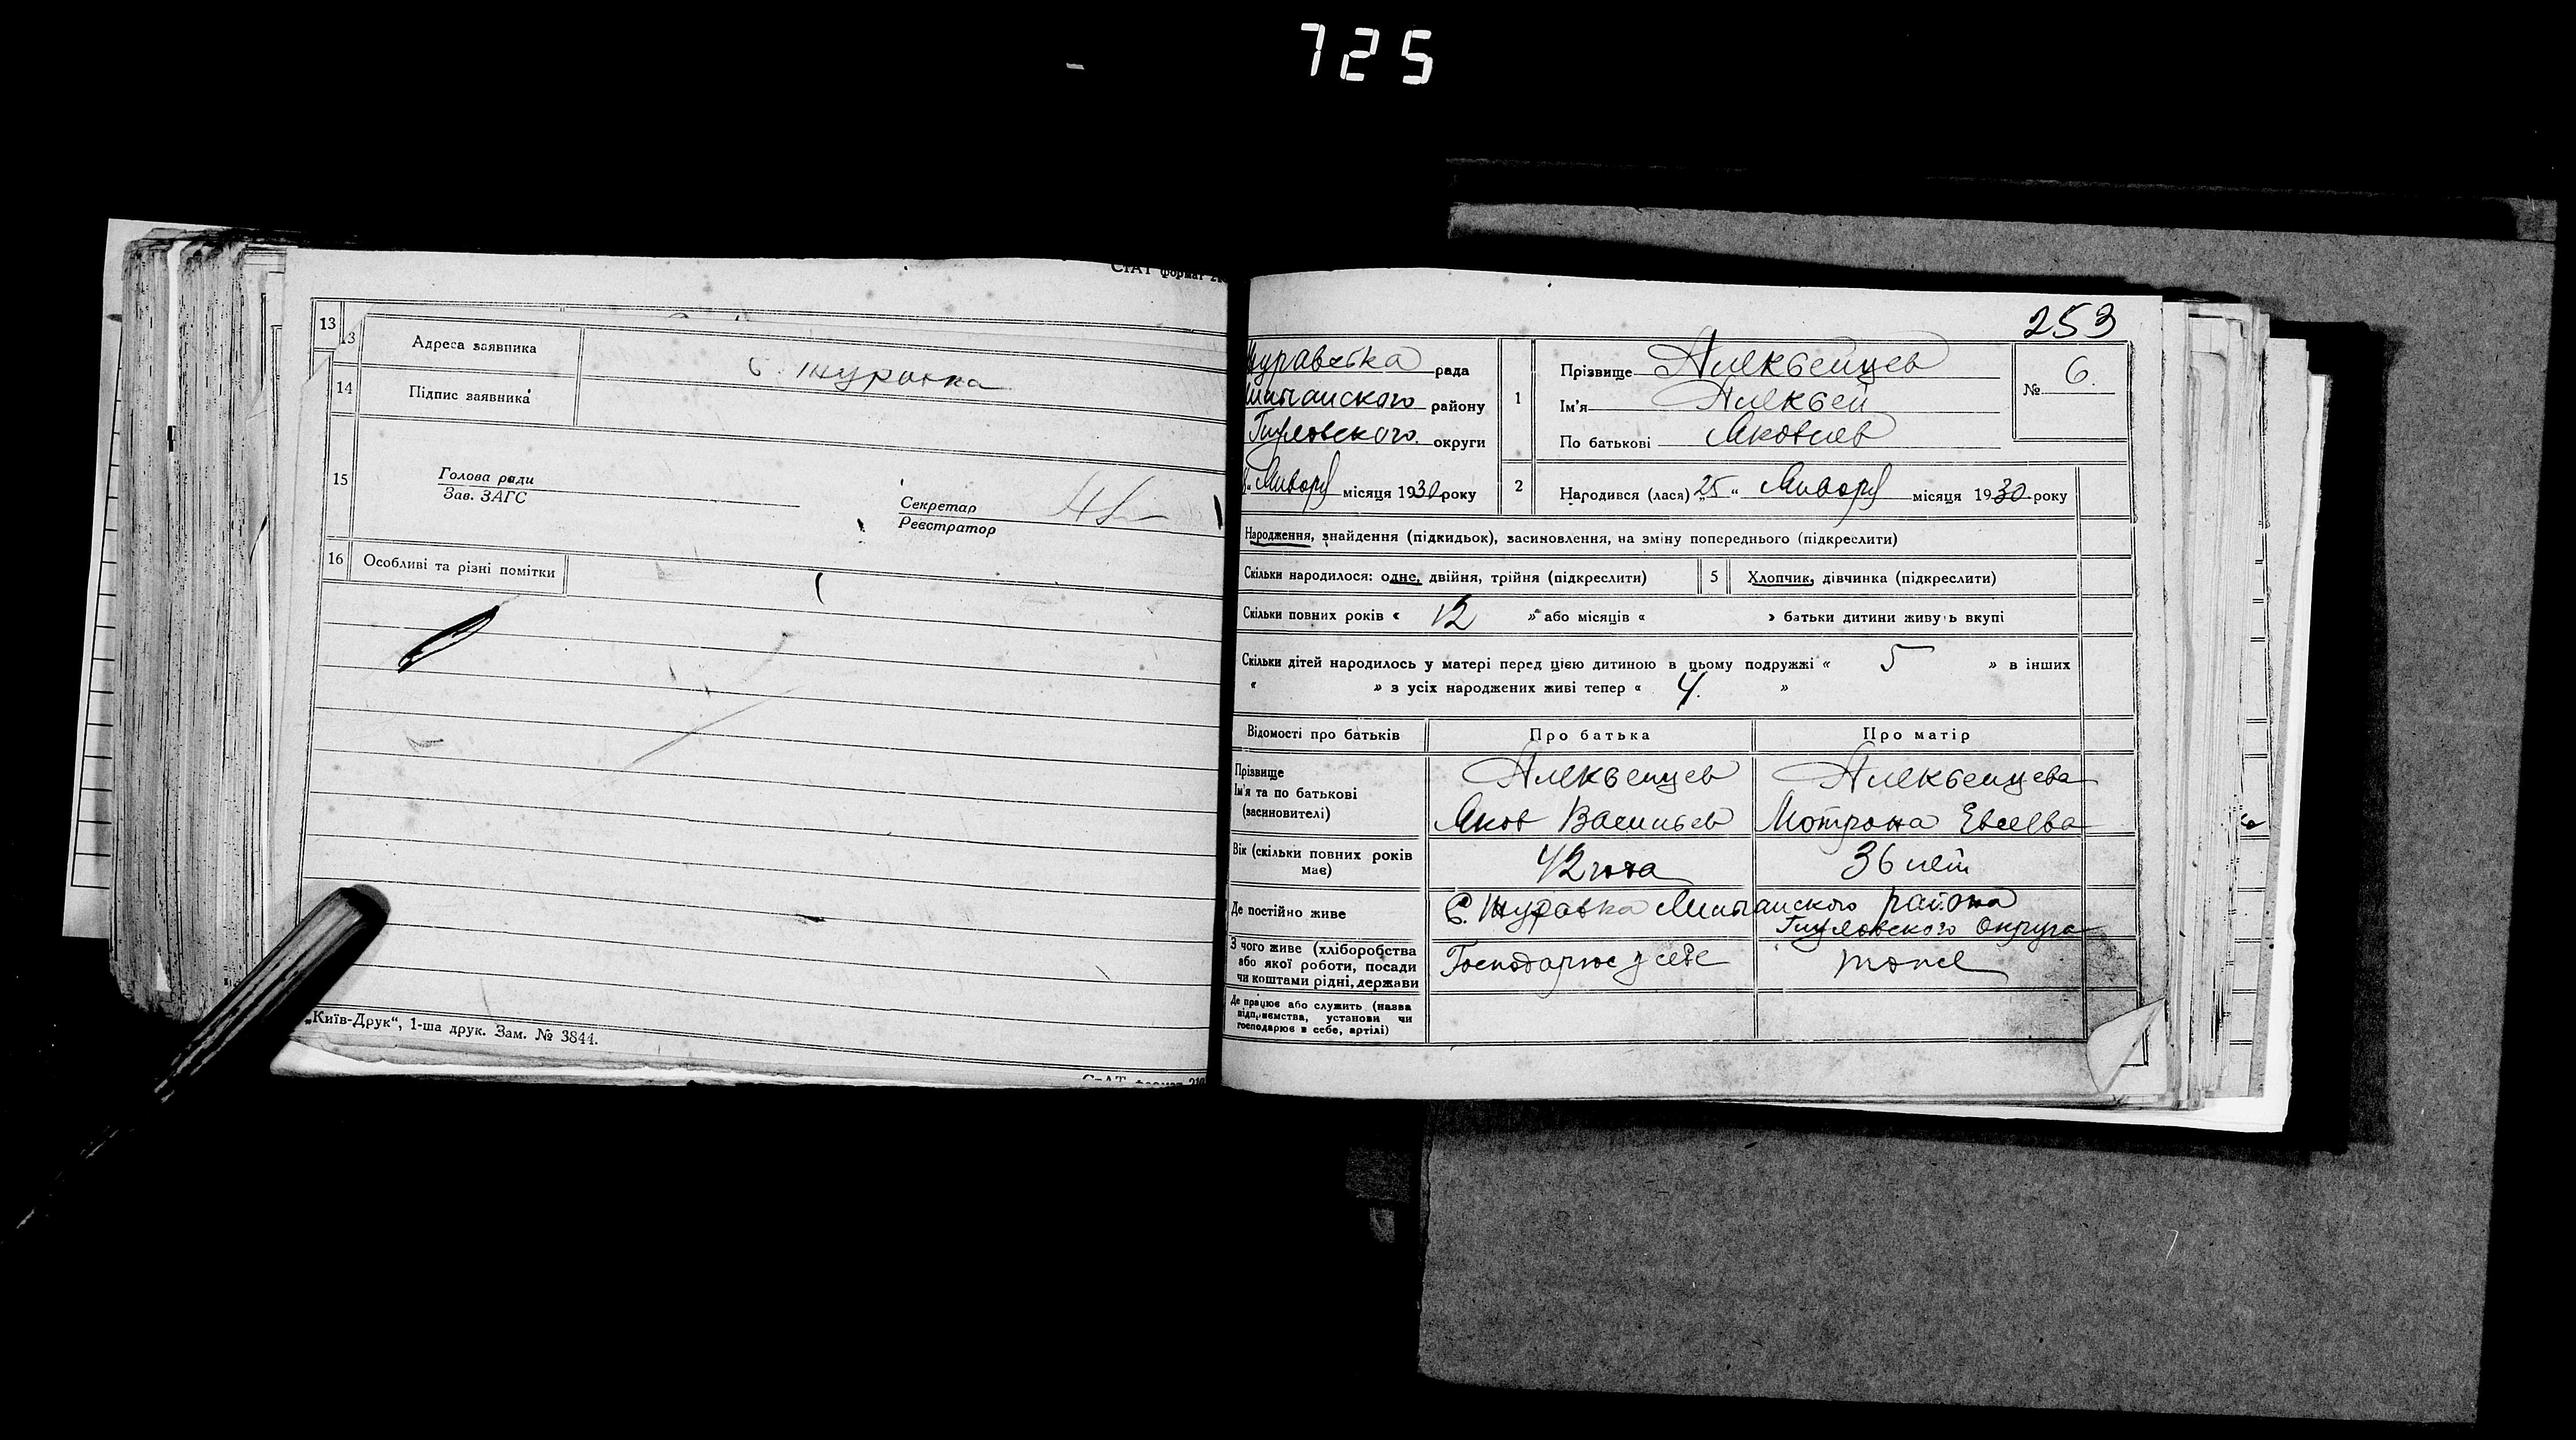 725
13
13
Адреса заявника
с. Журавка
14
Підпис заявника
15
Голова ради
Зав. ЗАГС
Секретар
Реєстратор
16
Особливі та різні помітки
„Київ-Друк“, 1-ша друк. Зам. № 3844.
253
рада
району
округи
Январy місяця 1930 року
1
Прізвище Алексеицев
Ім'я Алексей
По батькові Яковлев
№ 6.
2
Народився (лася) „25“ Январy місяця 1930 року
Народження, знайдення (підкидьок), засиновлення, на зміну попереднього (підкреслити)
Скільки народилося: одне, двійня, трійня (підкреслити)
5
Хлопчик, дівчинка (підкреслити)
Скільки повних років « 12 » або місяців « » батьки дитини живуть вкупі
Скільки дітей народилось у матері перед цією дитиною в цьому подружжі « 5 » в інших
« » з усіх народжених живі тепер « 4. »
Відомості про батьків
Про батька
Про матір
Прізвище
Ім'я та по батькові
(засиновителі)
Алексеицев
Яков Васильев
Алексеицева
Мотрона Евсеева
Вік (скільки повних років
має)
42 года
36 лет
Де постійно живе
С. Журавка района
Округа
З чого живе (хліборобства
або якої роботи, посади
чи коштами рідні, держави
Господарює у себе
тоже
Де працює або служить (назва
підприємства, установи чи
господарює в себе, артілі)